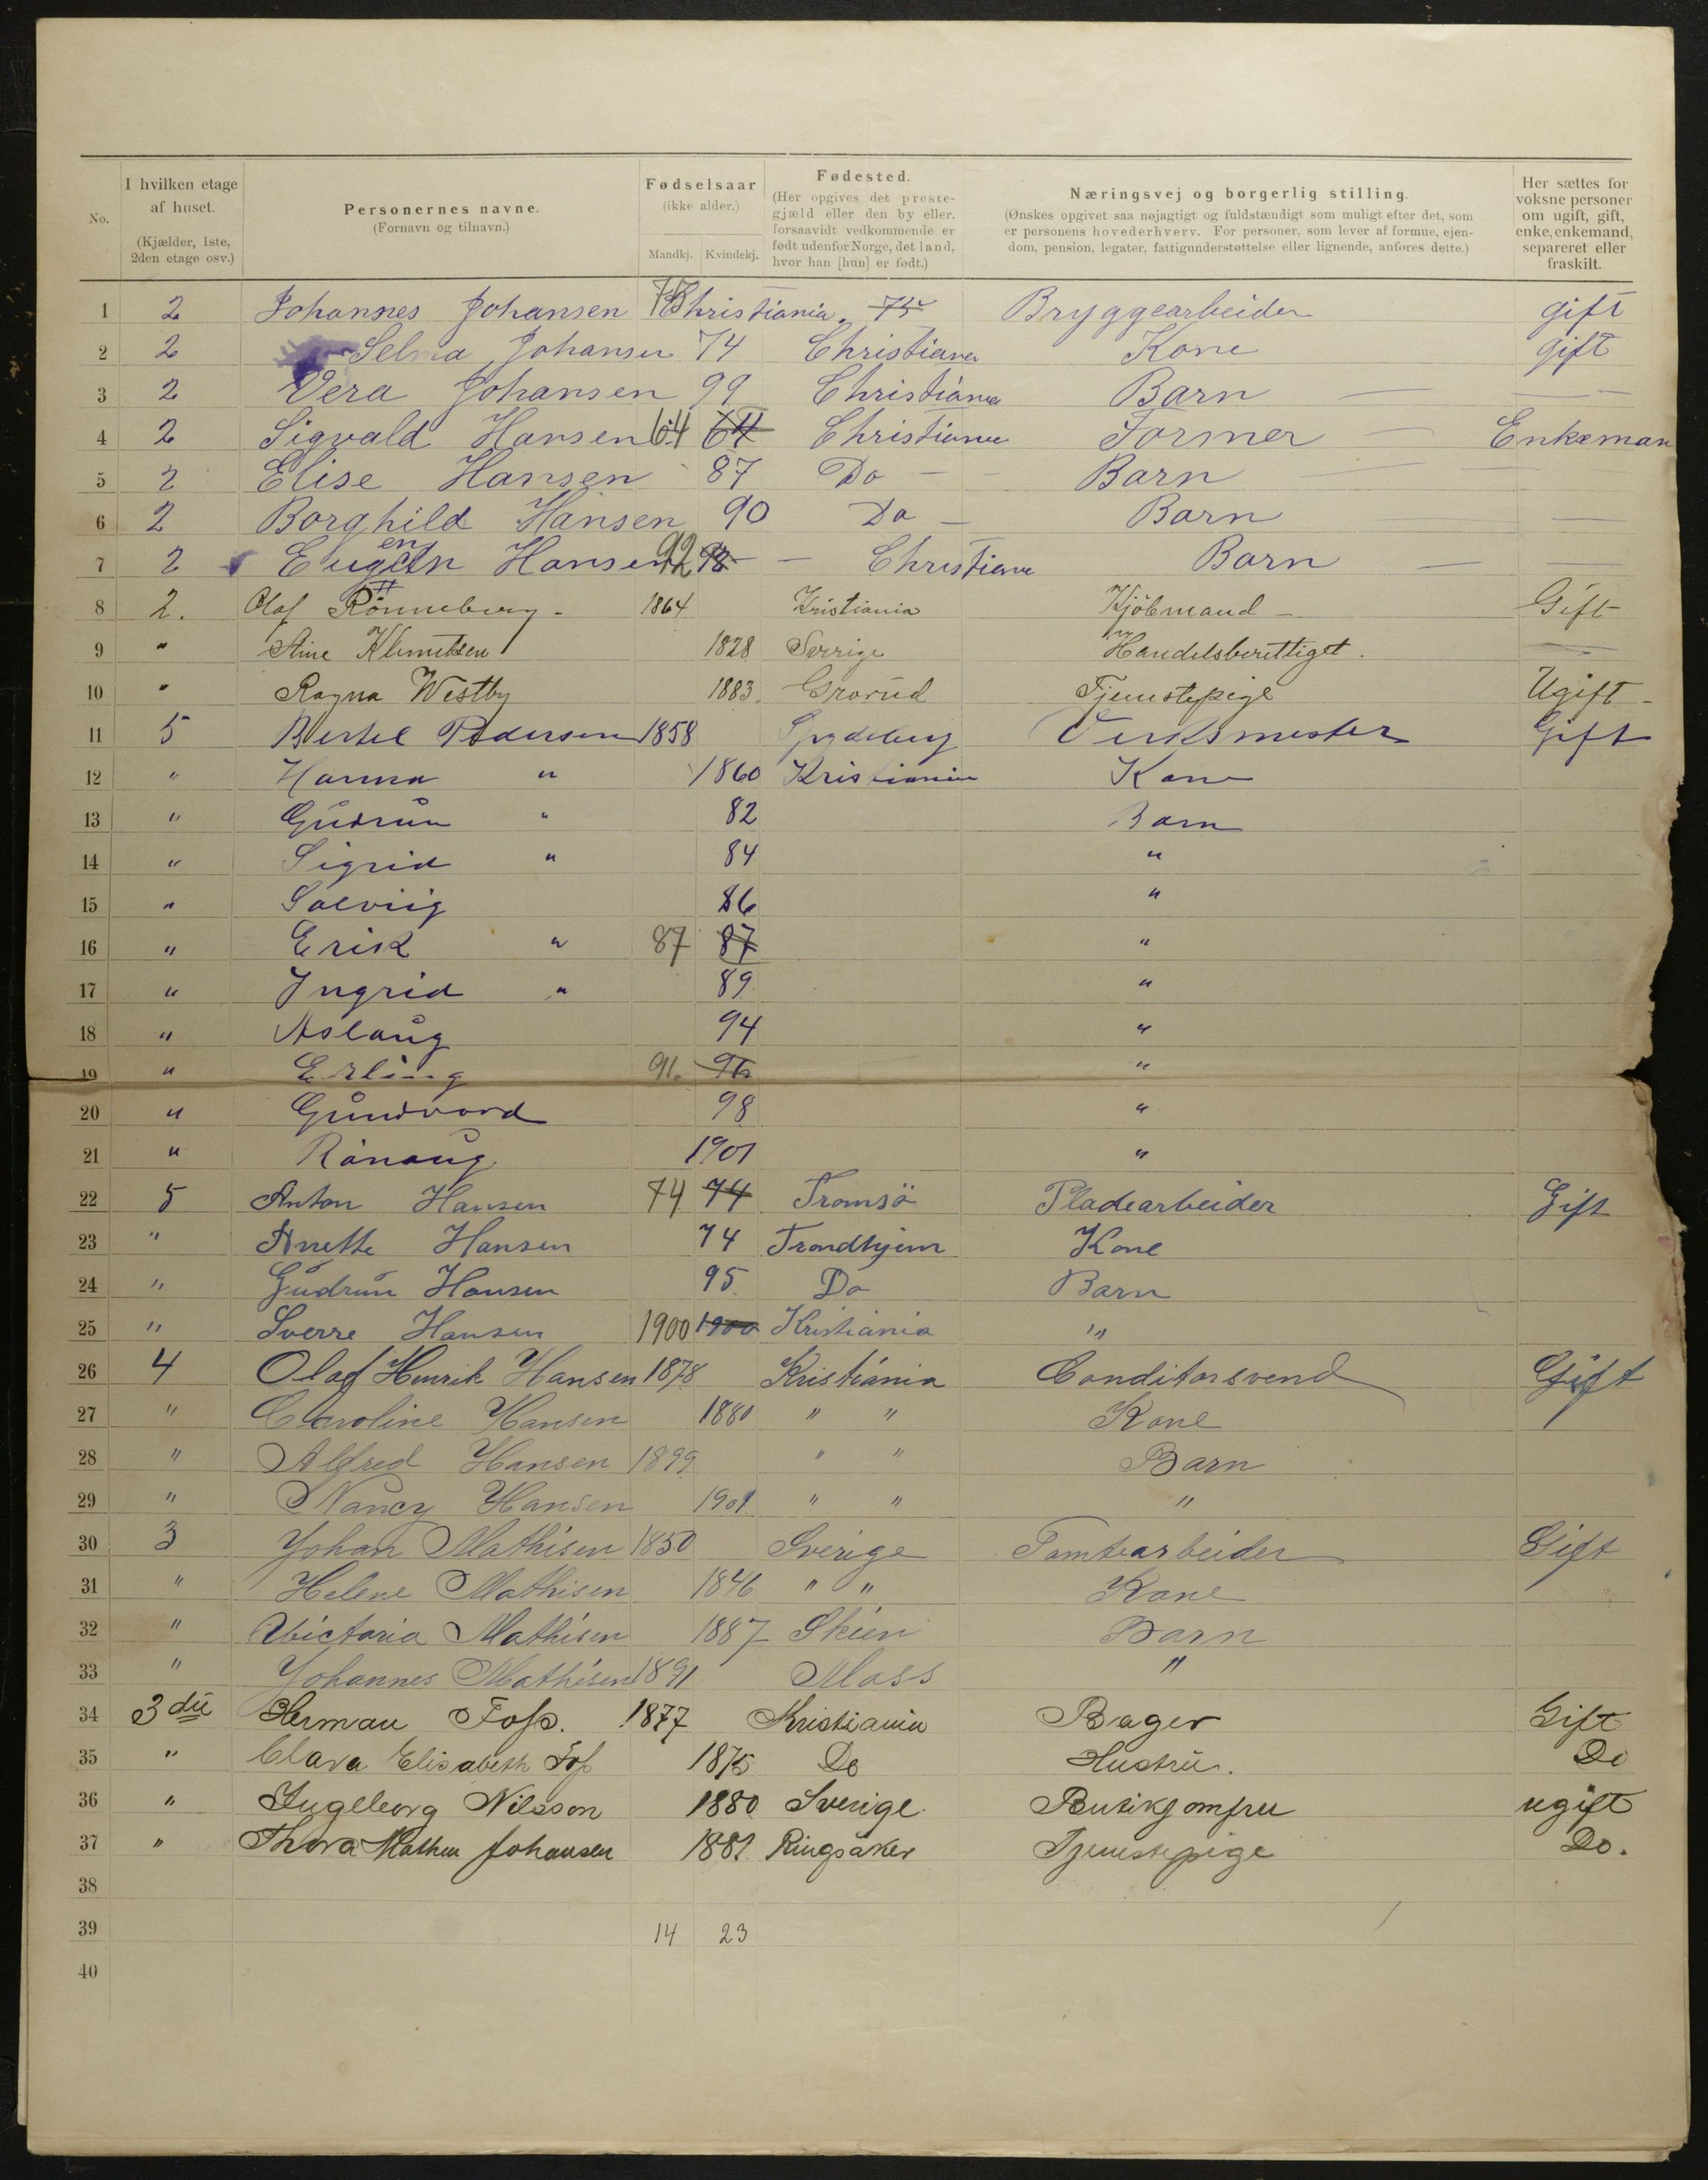 No.
I hvilken etage af huset. (Kjælder, 1ste, 2den etage osv.)
Personernes navne. (Fornavn og tilnavn.)
Fødselsaar (ikke alder.) Mandkj. Kvindekj.
Fødested. (Her opgives det prestegjæld eller den by eller, forsaavidt vedkommende er født udenfor Norge, det land, hvor han [hun] er født.)
Næringsvej og borgerlig stilling. (Ønskes opgivet saa nøjagtigt og fuldstændigt som muligt efter det, som er personens hovederhverv. For personer, som lever af formue, ejendom, pension, legater, fattigunderstøttelse eller lignende, anføres dette.)
Her sættes for voksne personer om ugift, gift, enke, enkemand, separeret eller fraskilt.
1 2 Johannes Johansen 75 Christiania. 75 Bryggearbeider gift
2 2 Selma Johansen 74 Christiania Kone gift
3 2 Vera Johansen 99 Christiania Barn —
4 2 Sigvald Hansen 64 64 Christiania Former — Enkeman
5 2 Elise Hansen 87 Do — Barn —
6 2 Borghild Hansen 90 Do — Barn —
7 2 Eugen Hansen 92 92 — Christiania Barn —
8 2. Olaf Rönneberg - 1864 Kristiania Kjöbmand - Gift
9 " Stine Klemetsen 1828 Sverige Handelsberettiget. —
10 " Ragna Westby 1883. Grorud Tjenestepige Ugift -
11 5 Bertel Pedersen 1858 Spydeberg Verksmester Gift
12 " Hanna " 1860 Kristiania Kone
13 " Gudrun " 82 Barn
14 " Sigrid " 84 "
15 " Solveig 86 "
16 " Erik " 87 87 "
17 " Ingrid " 89 "
18 " Aslaug 94 "
19 " Erling 96 96 "
20 " Gundvord 98 "
21 " Ranaug 1901 "
22 5 Anton Hansen 74 74 Tromsö Pladearbeider Gift
23 " Anette Hansen 74 Trondhjem Kone
24 " Gudrun Hansen 95 Do Barn
25 " Sverre Hansen 1900 1900 Kristiania "
26 4 Olaf Henrik Hansen 1878 Kristiania Conditorsvend Gift
27 " Caroline Hansen 1880 " " Kone
28 " Alfred Hansen 1899 " " Barn
29 " Nancy Hansen 1901 " " "
30 3 Johan Mathisen 1850 Sverige Tomtearbeider Gift
31 " Helene Mathisen 1846 " " Kone
32 " Victoria Mathisen 1887 Skien Barn
33 " Johannes Mathisen 1891 Moss "
34 3die Herman Foss. 1877 Kristiania Bager Gift
35 " Clara Elisabeth Foss 1875 Do Hustru. Do
36 " Ingeborg Nilsson 1880 Sverige Butikjomfru ugift
37 " Thora Mathea Johansen 1881 Ringsaker Tjenestepige Do.
38
39 14 23
40